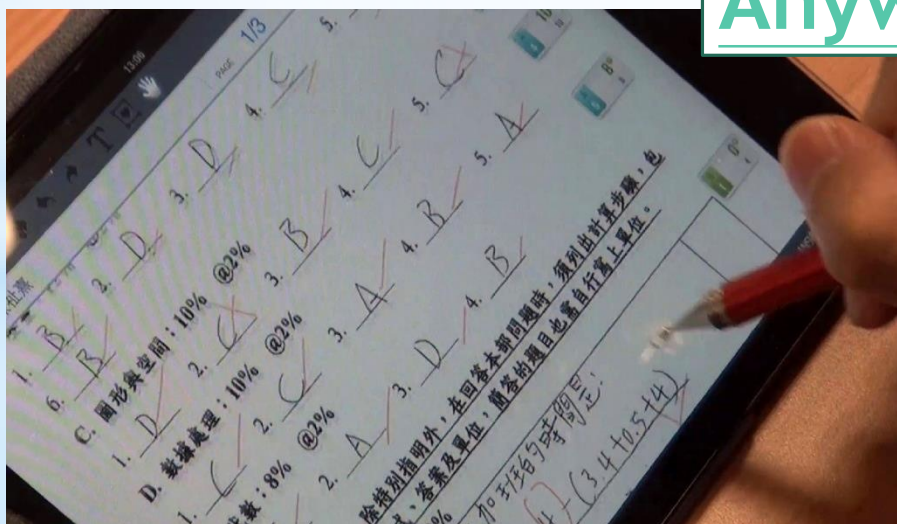 Anyw
13:06
PAGE 1/3
1. B 2. D 3. D 4. C 5.
6. B
C. 圖形與空間：10% @2%
1. D 2. C 3. B 4. C 5. C
D. 數據處理：10% @2%
1. C 2. C 3. A 4. B 5. A
數：8% @2%
2. A 3. D 4. B
除特別指明外，在回答本部問題時，須列出計算步驟，包
、答案及單位，簡答的題目也需自行寫上單位。
的時間是：
-(3.4+0.5+4)